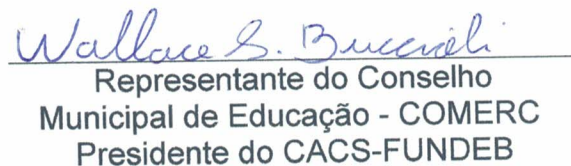 Wallace S.
Representante do Conselho
Municipal de Educação - COMERC
Presidente do CACS-FUNDEB